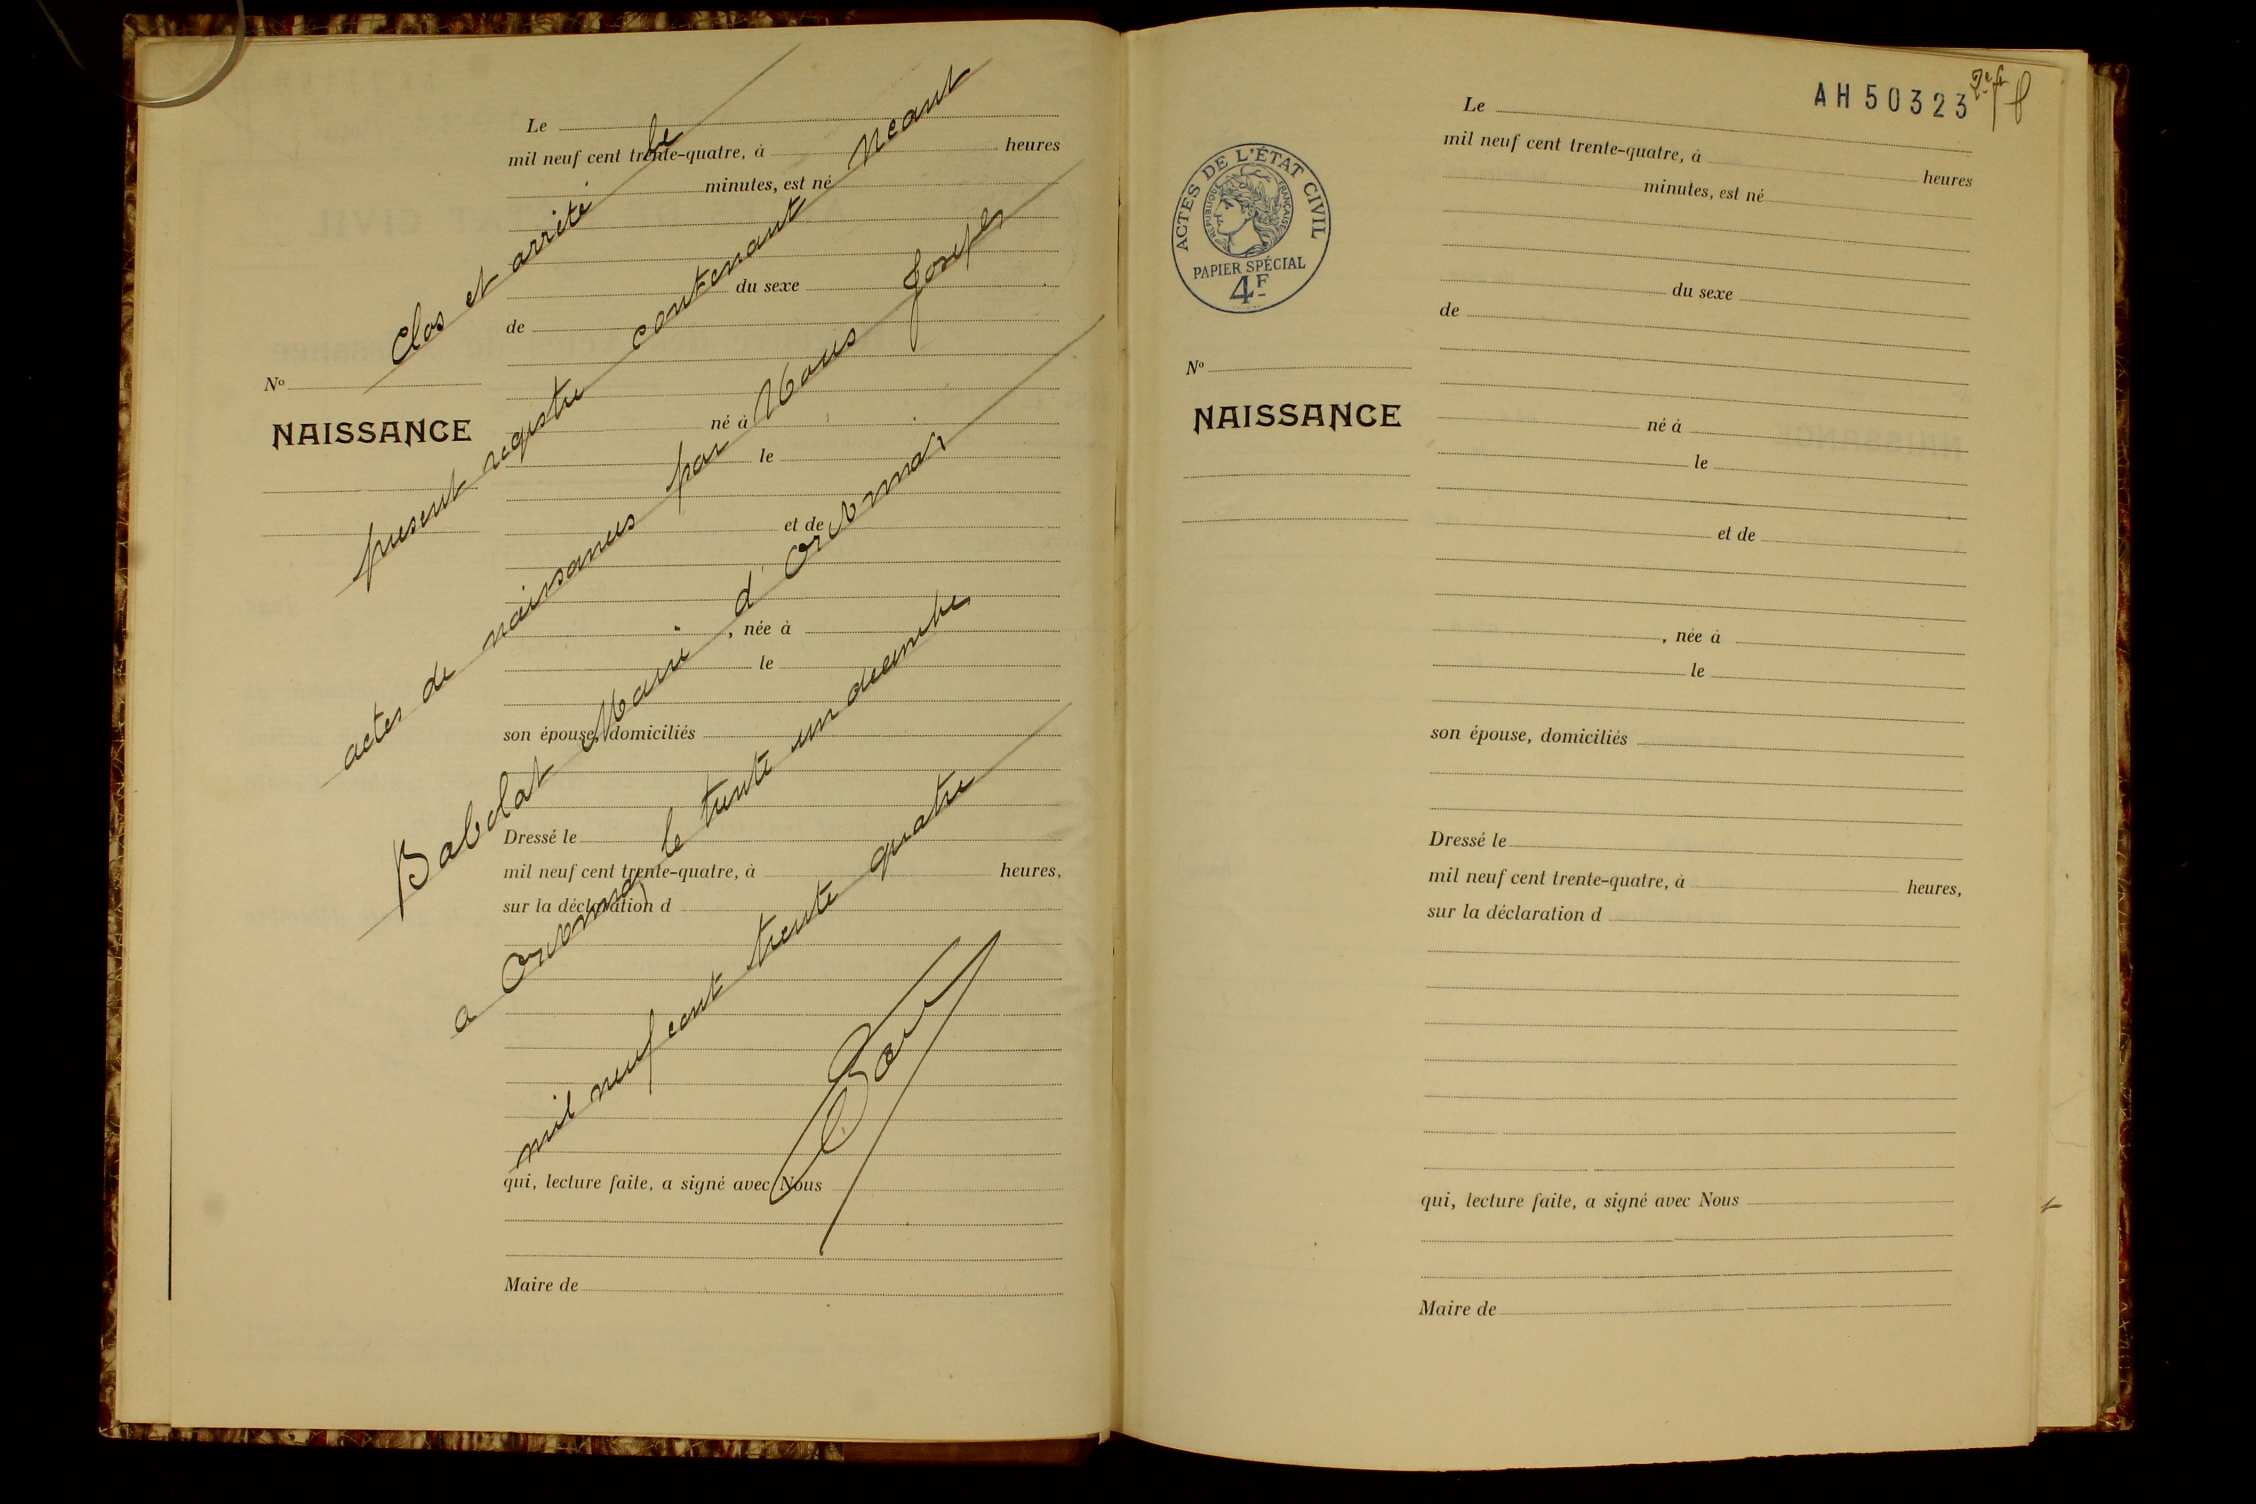 Le
mil neuf cent trente-quatre, à heures
minutes, est né
du sexe
de
né à
le
et de
, née à
le
son épouse, domiciliés
Dressé le
mil neuf cent trente-quatre, à heures,
sur la déclaration d
qui, lecture faite, a signé avec Nous
Maire de
No
NAISSANCE
Clos et arrêté le
présent registre contenant Neant
actes de naissances par Nous Joseph
Maire d'Ornemay
a Ornemay le trente un décembre
mil neuf cent trente quatre
AH 50323
ACTES DE L'ÉTAT CIVIL
RÉPUBLIQUE FRANÇAISE
PAPIER SPÉCIAL
4F
No
NAISSANCE
Le
mil neuf cent trente-quatre, à heures
minutes, est né
du sexe
de
né à
le
et de
, née à
le
son épouse, domiciliés
Dressé le
mil neuf cent trente-quatre, à heures,
sur la déclaration d
qui, lecture faite, a signé avec Nous
Maire de